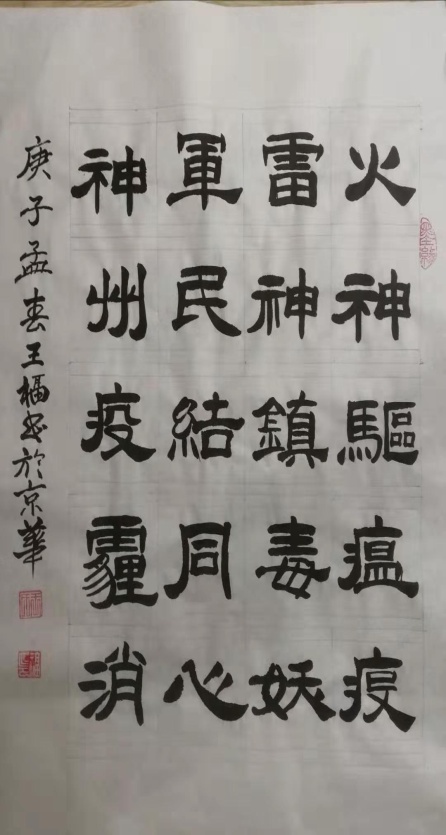 火神驅瘟疫
雷神鎮毒妖
軍民結同心
神州疫霾消
庚子孟春王楅书於京華